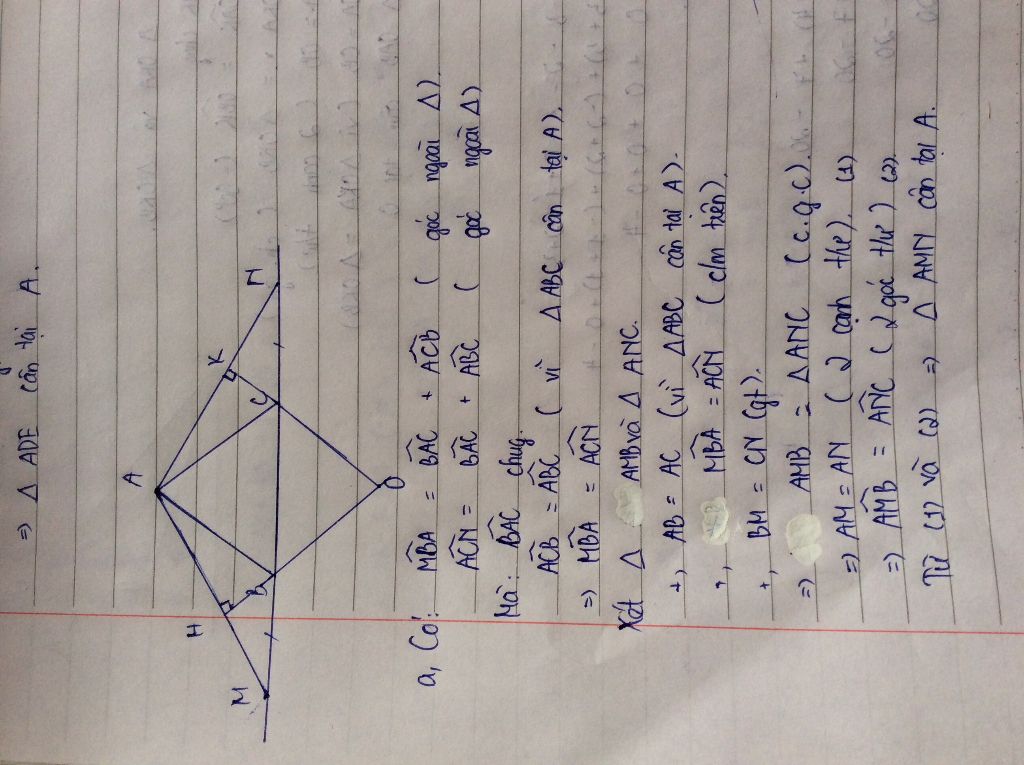 => Δ ADE cân tại A.
A
H
K
M
B
C
N
O
a, Có: M̂BA = B̂AC + ÂCB ( góc ngoài Δ)
ÂCN = B̂AC + ÂBC ( góc ngoài Δ)
Mà: B̂AC chug.
ÂCB = ÂBC ( vì Δ ABC cân tại A).
=> M̂BA = ÂCN
Xét Δ AMB và Δ ANC.
+, AB = AC (vì ΔABC cân tại A).
+, M̂BA = ÂCN (c/m trên).
+, BM = CN (gt).
=> AMB = ΔANC (c.g.c).
=> AM = AN ( 2 cạnh t/ư). (1)
=> ÂMB = ÂNC ( 2 góc t/ư) (2)
Từ (1) và (2) => Δ AMN cân tại A.